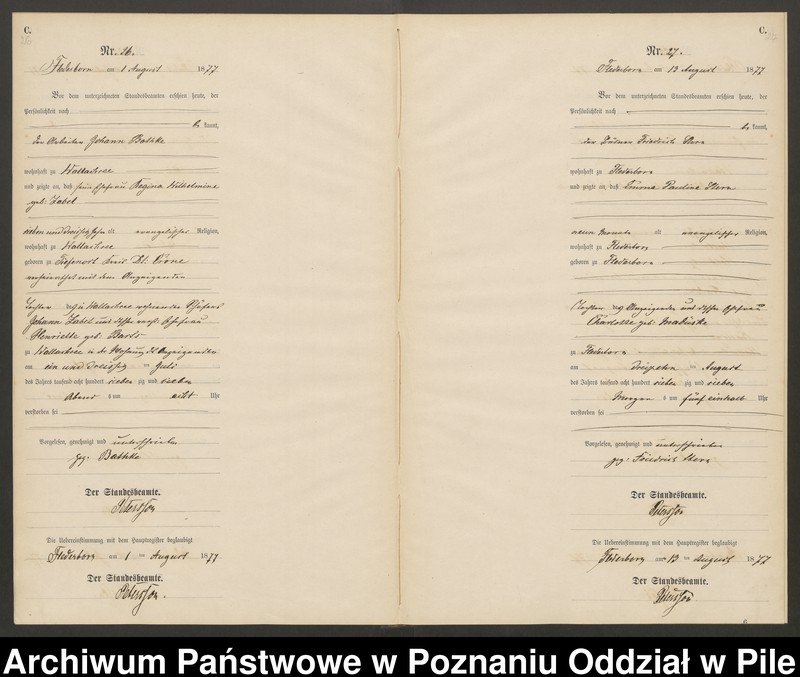 C.
Nr. 26.
Flederborn am 1 August 1877
Vor dem unterzeichneten Standesbeamten erschien heute, der
Persönlichkeit nach
be kannt,
der Arbeiter Johann Bathke
wohnhaft zu Wallachsee
und zeigte an, daß seine Ehefrau Regina Wilhelmine
geb. Zabel
sieben und dreissig Jahre alt evangelischer Religion,
wohnhaft zu Wallachsee
geboren zu Kreis Dt. Crone
verheirathet mit dem Anzeigenden
Tochter zu Wallachsee
Johann Zabel und dessen Ehefrau
Henriette geb.
zu Wallachsee in der Wohnung des Anzeigenden
am ein und dreissig ten Juli
des Jahres tausend acht hundert sieben zig und sieben
Abend s um acht Uhr
verstorben sei
Vorgelesen, genehmigt und unterschrieben
gez. Bathke
Der Standesbeamte.
Petersson
Die Uebereinstimmung mit dem Hauptregister beglaubigt
Flederborn am 1 ten August 1877
Der Standesbeamte.
Petersson.
C.
Nr. 27.
Flederborn am 13 August 1877
Vor dem unterzeichneten Standesbeamten erschien heute, der
Persönlichkeit nach
be kannt,
der Friedrich Stern
wohnhaft zu Flederborn
und zeigte an, daß Emma Pauline Stern
neun Monate alt evangelischer Religion,
wohnhaft zu Flederborn
geboren zu Flederborn
Tochter des Anzeigenden und dessen Ehefrau
Charlotte geb.
zu Flederborn
am dreizehn ten August
des Jahres tausend acht hundert sieben zig und sieben
Morgen s um fünf einhalb Uhr
verstorben sei
Vorgelesen, genehmigt und unterschrieben
gez. Friedrich Stern
Der Standesbeamte.
Petersson
Die Uebereinstimmung mit dem Hauptregister beglaubigt
Flederborn am 13 ten August 1877
Der Standesbeamte.
Petersson
Archiwum Państwowe w Poznaniu Oddział w Pile